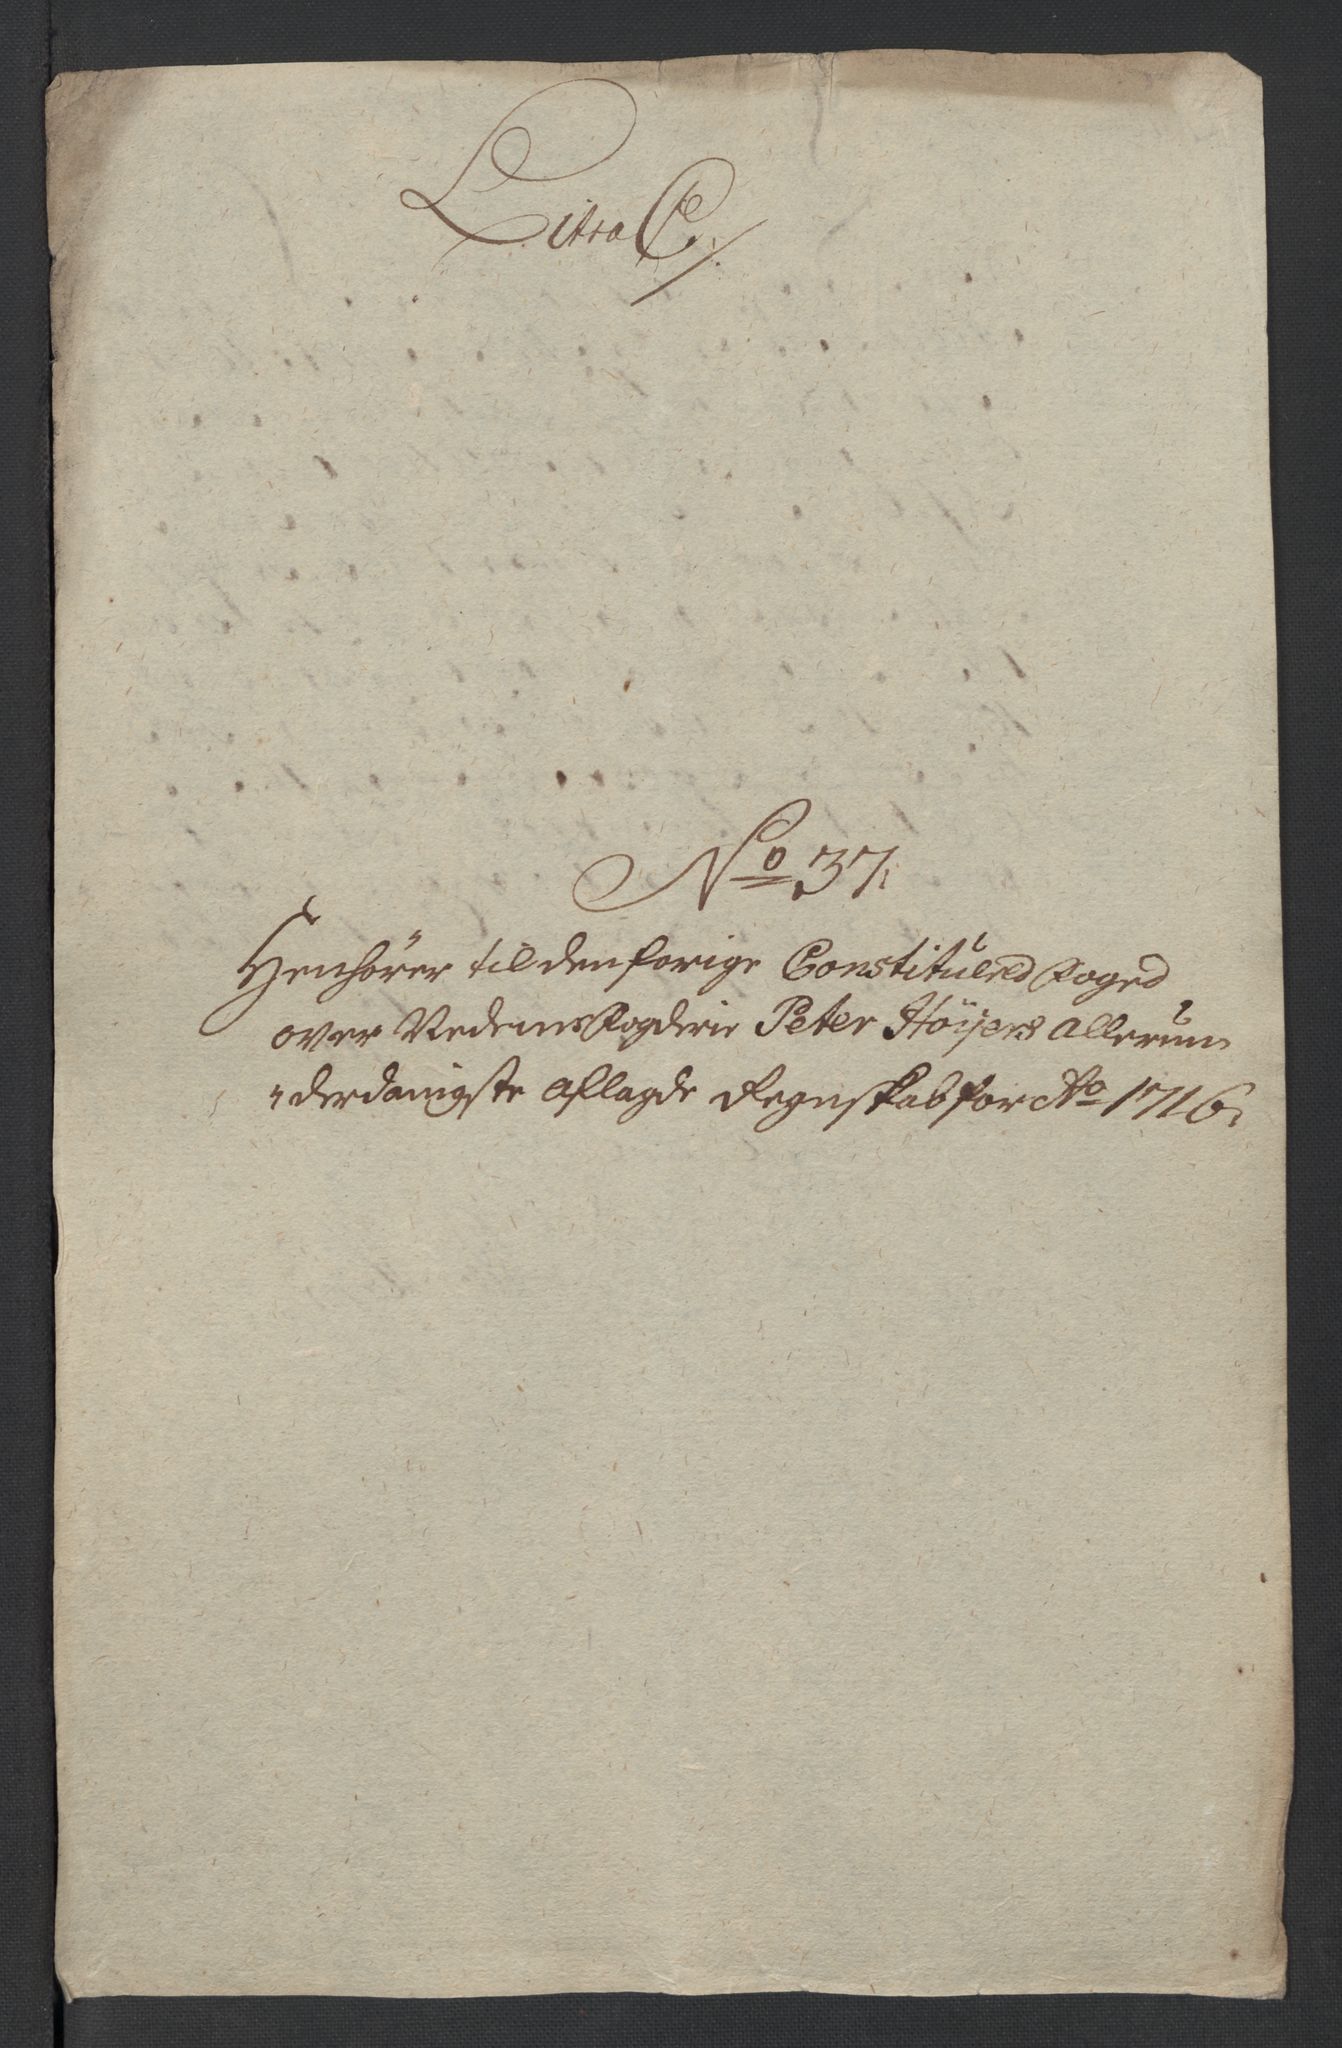 Litra C,
No 37,
Henhörer til den forige Constitulered Foged
over Nedenes Fogderie Peter Höyers Allerun-
derdanigste Aflagde Regnskab for Ao 1716,